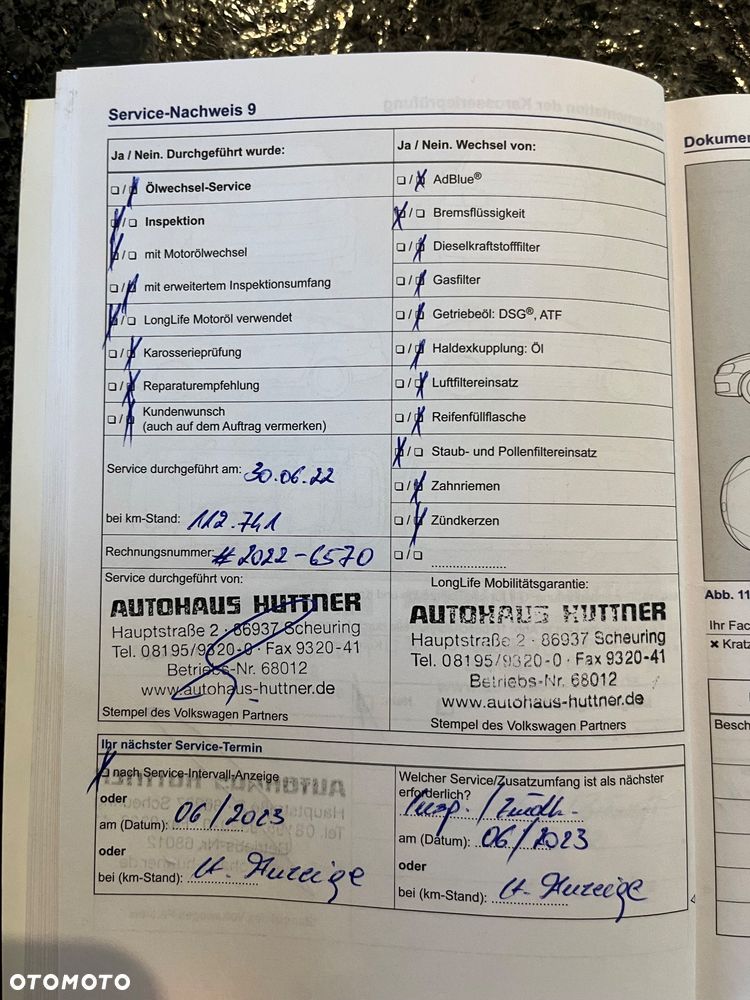 Service-Nachweis 9
Dokumen
Ja / Nein. Durchgeführt wurde:
❑/❑ Ölwechsel-Service
❑/❑ Inspektion
❑/❑ mit Motorölwechsel
❑/❑ mit erweitertem Inspektionsumfang
❑/❑ LongLife Motoröl verwendet
❑/❑ Karosserieprüfung
❑/❑ Reparaturempfehlung
❑/❑ Kundenwunsch
(auch auf dem Auftrag vermerken)
Service durchgeführt am: 30.06.22
bei km-Stand: 112.741
Rechnungsnummer: #2022-6570
Ja / Nein. Wechsel von:
❑/❑ AdBlue®
❑/❑ Bremsflüssigkeit
❑/❑ Dieselkraftstofffilter
❑/❑ Gasfilter
❑/❑ Getriebeöl: DSG®, ATF
❑/❑ Haldexkupplung: Öl
❑/❑ Luftfiltereinsatz
❑/❑ Reifenfüllflasche
❑/❑ Staub- und Pollenfiltereinsatz
❑/❑ Zahnriemen
❑/❑ Zündkerzen
❑/❑
Service durchgeführt von:
AUTOHAUS HUTTNER
Hauptstraße 2 · 86937 Scheuring
Tel. 08195/9320-0 · Fax 9320-41
Betriebs-Nr. 68012
www.autohaus-huttner.de
Stempel des Volkswagen Partners
LongLife Mobilitätsgarantie:
AUTOHAUS HUTTNER
Hauptstraße 2 · 86937 Scheuring
Tel. 08195/9320-0 · Fax 9320-41
Betriebs-Nr. 68012
www.autohaus-huttner.de
Stempel des Volkswagen Partners
Ihr nächster Service-Termin
❑ nach Service-Intervall-Anzeige
oder
am (Datum): 06/2023
oder
bei (km-Stand): lt. Anzeige
Welcher Service/Zusatzumfang ist als nächster
erforderlich?
Insp. /
am (Datum): 06/2023
oder
bei (km-Stand): lt. Anzeige
Abb. 11
Ihr Fac
✖ Kratz
Besch
OTOMOTO